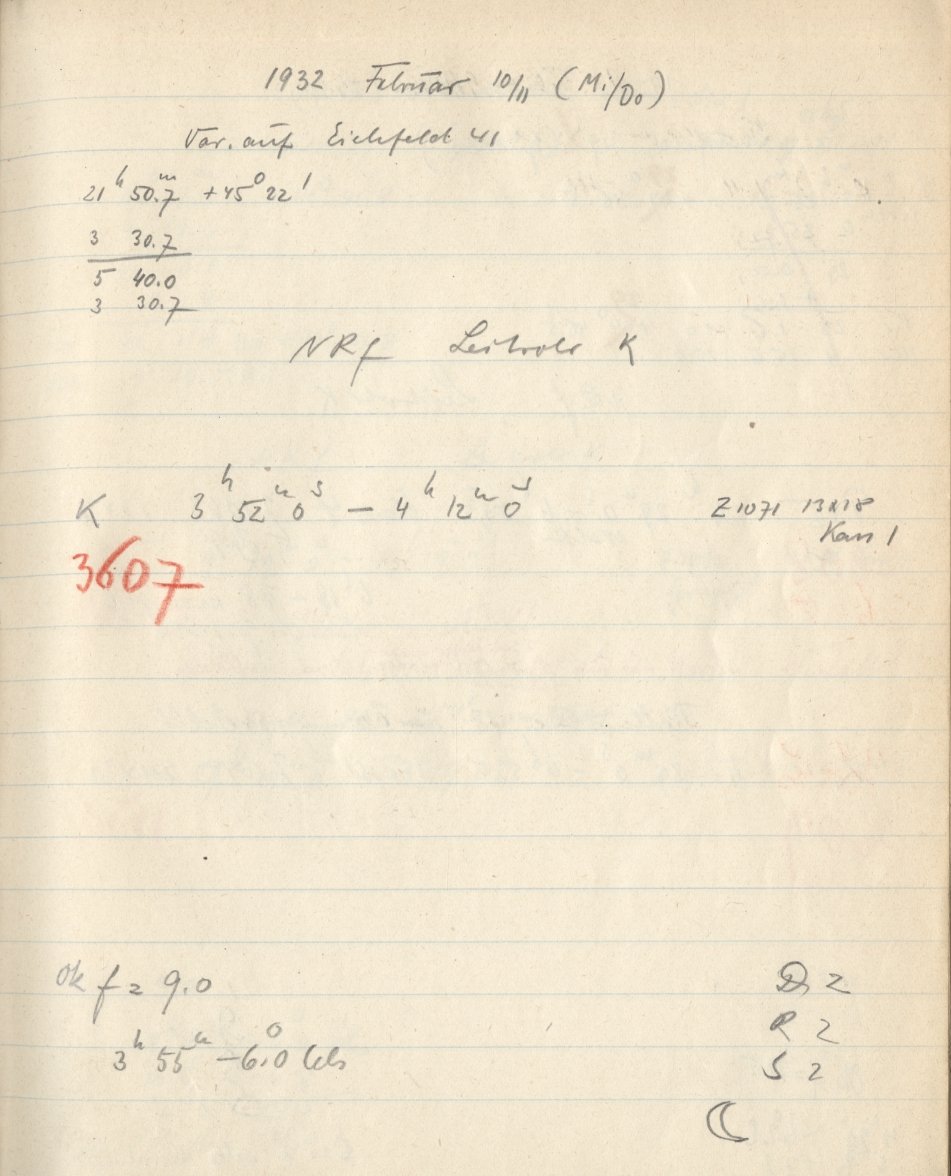 1932 Februar 10/11 (Mi/Do)
Var. auf Eichfeld 41
21ʰ 50.7ᵐ +45° 22'
3 30.7
5 40.0
3 30.7
NRf Leitrohr K
K 3ʰ 52ᵐ 0ˢ — 4ʰ 12ᵐ 0ˢ Z1071 13x18
Kass 1
3607
Ok f = 9.0 D 2
R 2
3ʰ 55ᵐ -6.0° Cels S 2
☾